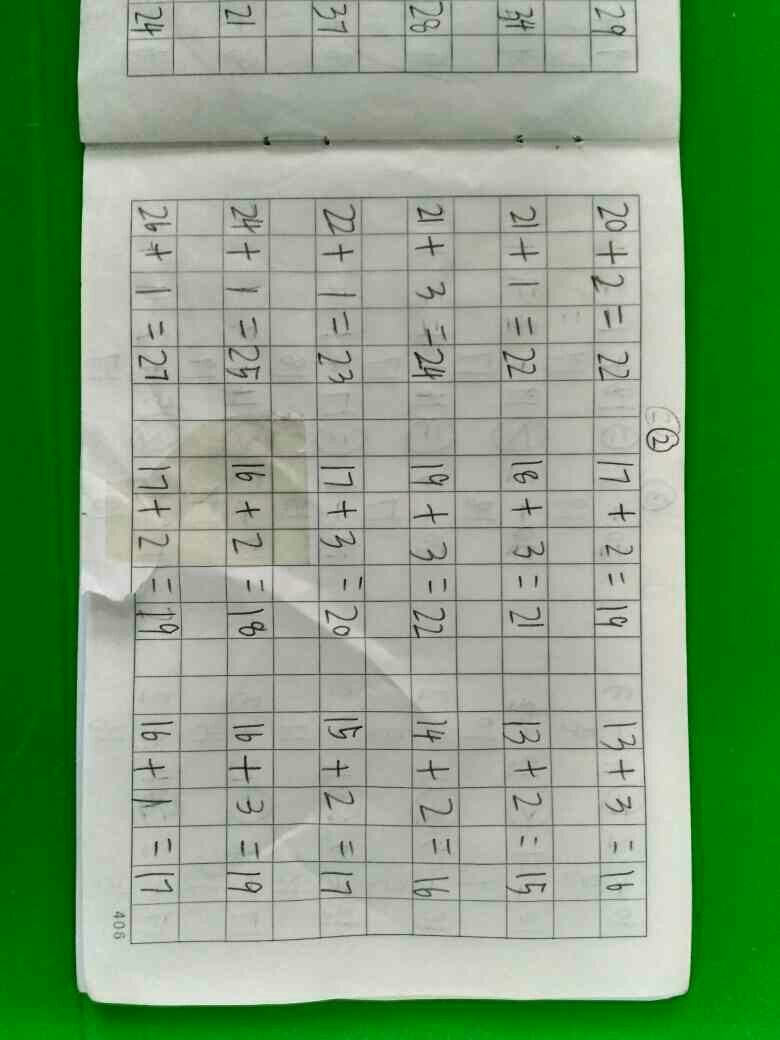 29
34
28
37
21
24
②
20+2=22 17+2=19 13+3=16
21+1=22 18+3=21 13+2=15
21+3=24 19+3=22 14+2=16
22+1=23 17+3=20 15+2=17
24+1=25 16+2=18 16+3=19
26+1=27 17+2=19 16+1=17
406